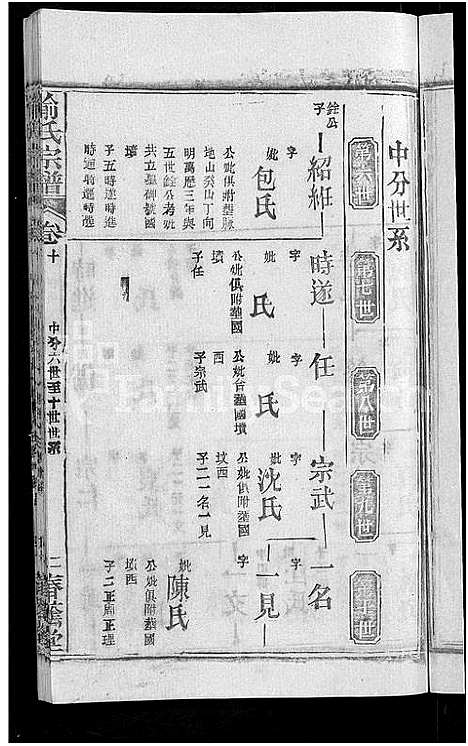 中分世系
第六世
第七世
第八世
第九世
第十世
銓公
子
紹維
時遂
任
宗武
一名
字
妣
包氏
公妣俱附葬脉
地山癸山丁向
明萬歷三年與
五世銓公老妣
共立墓碑號國
墳
子五時遂時進
字
妣
氏
公妣俱附葬國
墳
子任
字
妣
氏
公妣合葬國墳
西
子宗武
字
妣
沈氏
公妣俱附葬國
墳西
子二一名一見
字
一見
妣
陳氏
公妣俱附葬國
墳西
子二正周正理
俞氏宗譜
卷十
中分六世至十世世系
二
春誉堂
FamilySearch